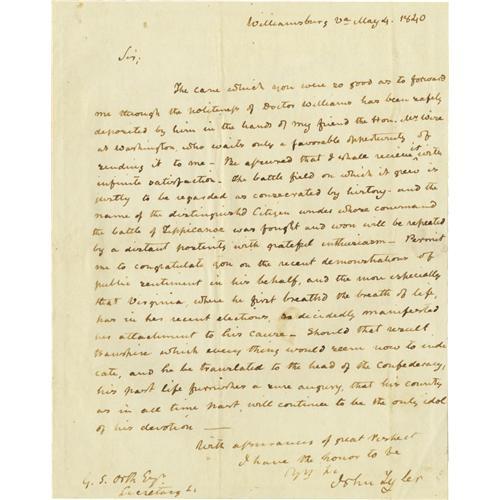 Williamsburg Va May 4. 1840
Sir,
The cane which you were so good as to forward
me through the politeness of Doctor Williams has been safely
deposited by him in the hands of my friend the Hon. Mr Wise
at Washington, who waits only a favorable opportunity of
sending it to me - Be assured that I shall receive it with
infinite satisfaction - The battle field on which it grew is
justly to be regarded as consecrated by history - and the
name of the distinguished Citizen under whose command
the battle of Tippicanoe was fought and won will be repeated
by a distant posterity with grateful enthusiasm - Permit
me to congratulate you on the recent demonstrations of
public sentiment in his behalf, and the more especially
that Virginia, where he first breath'd the breath of life,
has in her recent elections, so decidedly manifested
her attachment to his cause - Should that result
transpire which every thing would seem now to indi
cate, and he be translated to the head of the Confederacy,
his past life furnishes a sure augury, that his country
as in all time past, will continue to be the only idol
of his devotion -
With assurances of great respect
I have the honor to be
Yr &c
John Tyler
G. S. Orth Esqr.
Secretary &c.